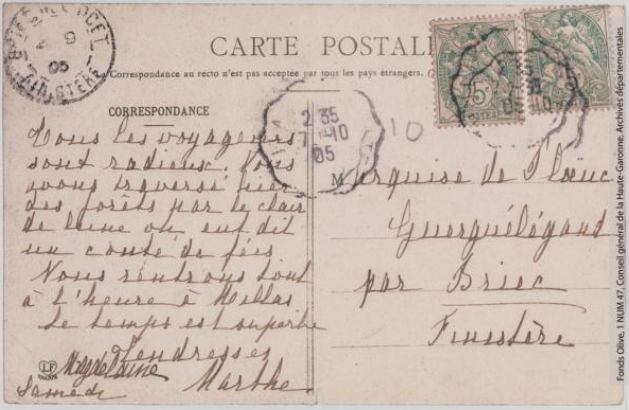 CARTE POSTALE
La Correspondance au recto n'est pas acceptée par tous les pays étrangers.
CORRESPONDANCE
Tous les voyageurs
sont radieux. Nous
avons traversé hier
des forêts par le clair
de lune on eut dit
un conte de fées
Nous rentrons tout
à l'heure à Millas
Le temps est superbe
Tendresses
Magdelaine
Marthe
Samedi
Marquise de Plœuc
Guerguélégand
par Briec
Finistère
2 35
7 - 10
05
10
FINISTERE
05
5c
LF
Fonds Olive, 1 NUM 47, Conseil général de la Haute-Garonne, Archives départementales